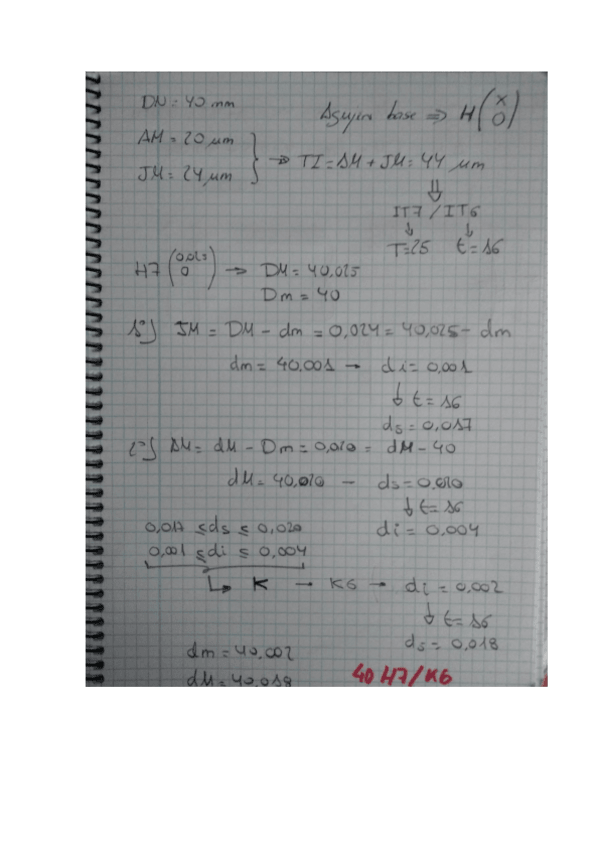 DN = 40 mm
Agujero base ⇒ H (X 0)
AM = 20 µm
JM = 24 µm
} → TI = AM + JM = 44 µm
⇓
IT7 / IT6
↓ ↓
T=25 t=16
H7 (0,025 0) → DM = 40,025
Dm = 40
1º) JM = DM - dm = 0,024 = 40,025 - dm
dm = 40,001 → di = 0,001
↓ t=16
ds = 0,017
2º) AM = dM - Dm = 0,020 = dM - 40
dM = 40,020 - ds = 0,020
↓ t=16
di = 0,004
0,017 ≤ ds ≤ 0,020
0,001 ≤ di ≤ 0,004
↳ K → K6 → di = 0,002
↓ t=16
ds = 0,018
dm = 40,002
dM = 40,018
40 H7/K6